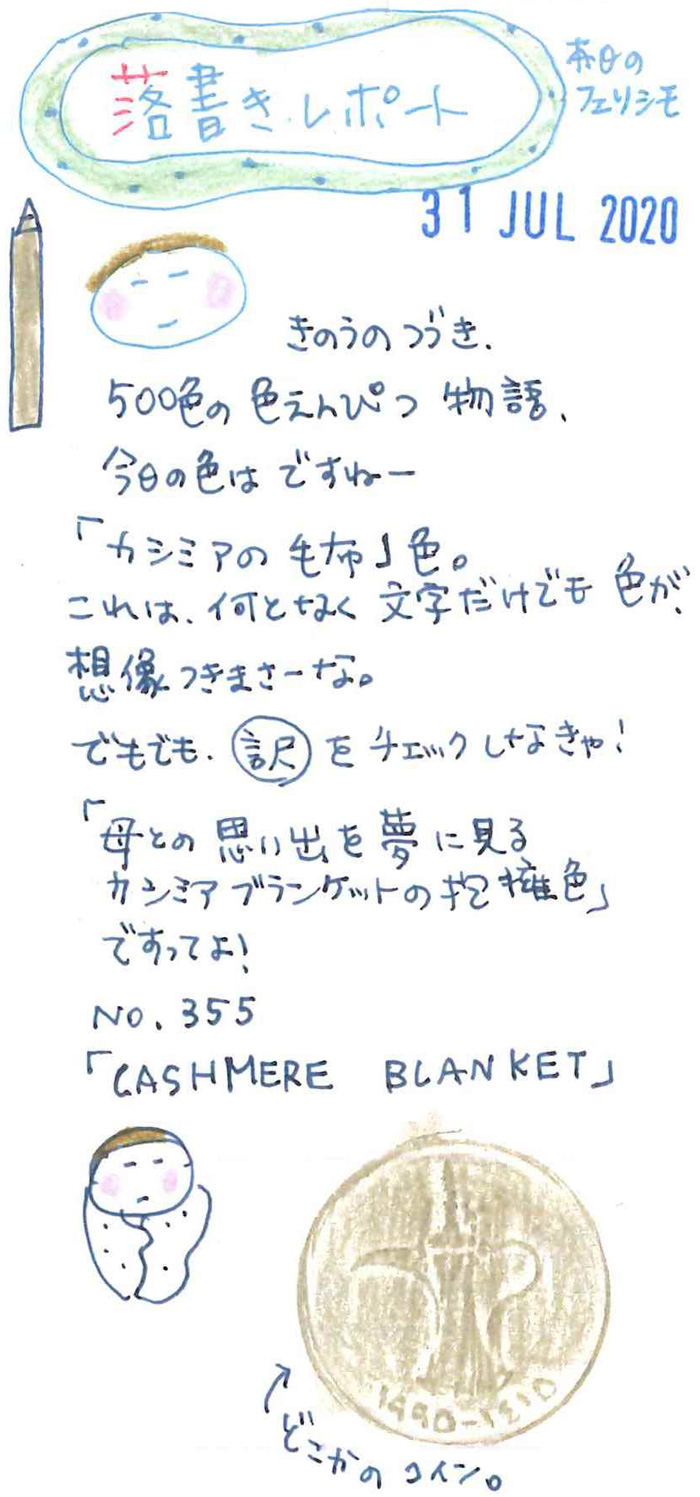 落書きレポート
本日の
フェリシモ
31 JUL 2020
きのうのつづき、
500色の色えんぴつ物語、
今日の色はですねー
「カシミアの毛布」色。
これは、何となく文字だけでも色が、
想像つきまさーな。
でもでも、訳をチェックしなきゃ！
「母との思い出を夢に見る
カシミアブランケットの抱擁色」
ですってよ！
NO.355
「CASHMERE BLANKET」
١٩٩٥-١٤١٥
どこかのコイン。